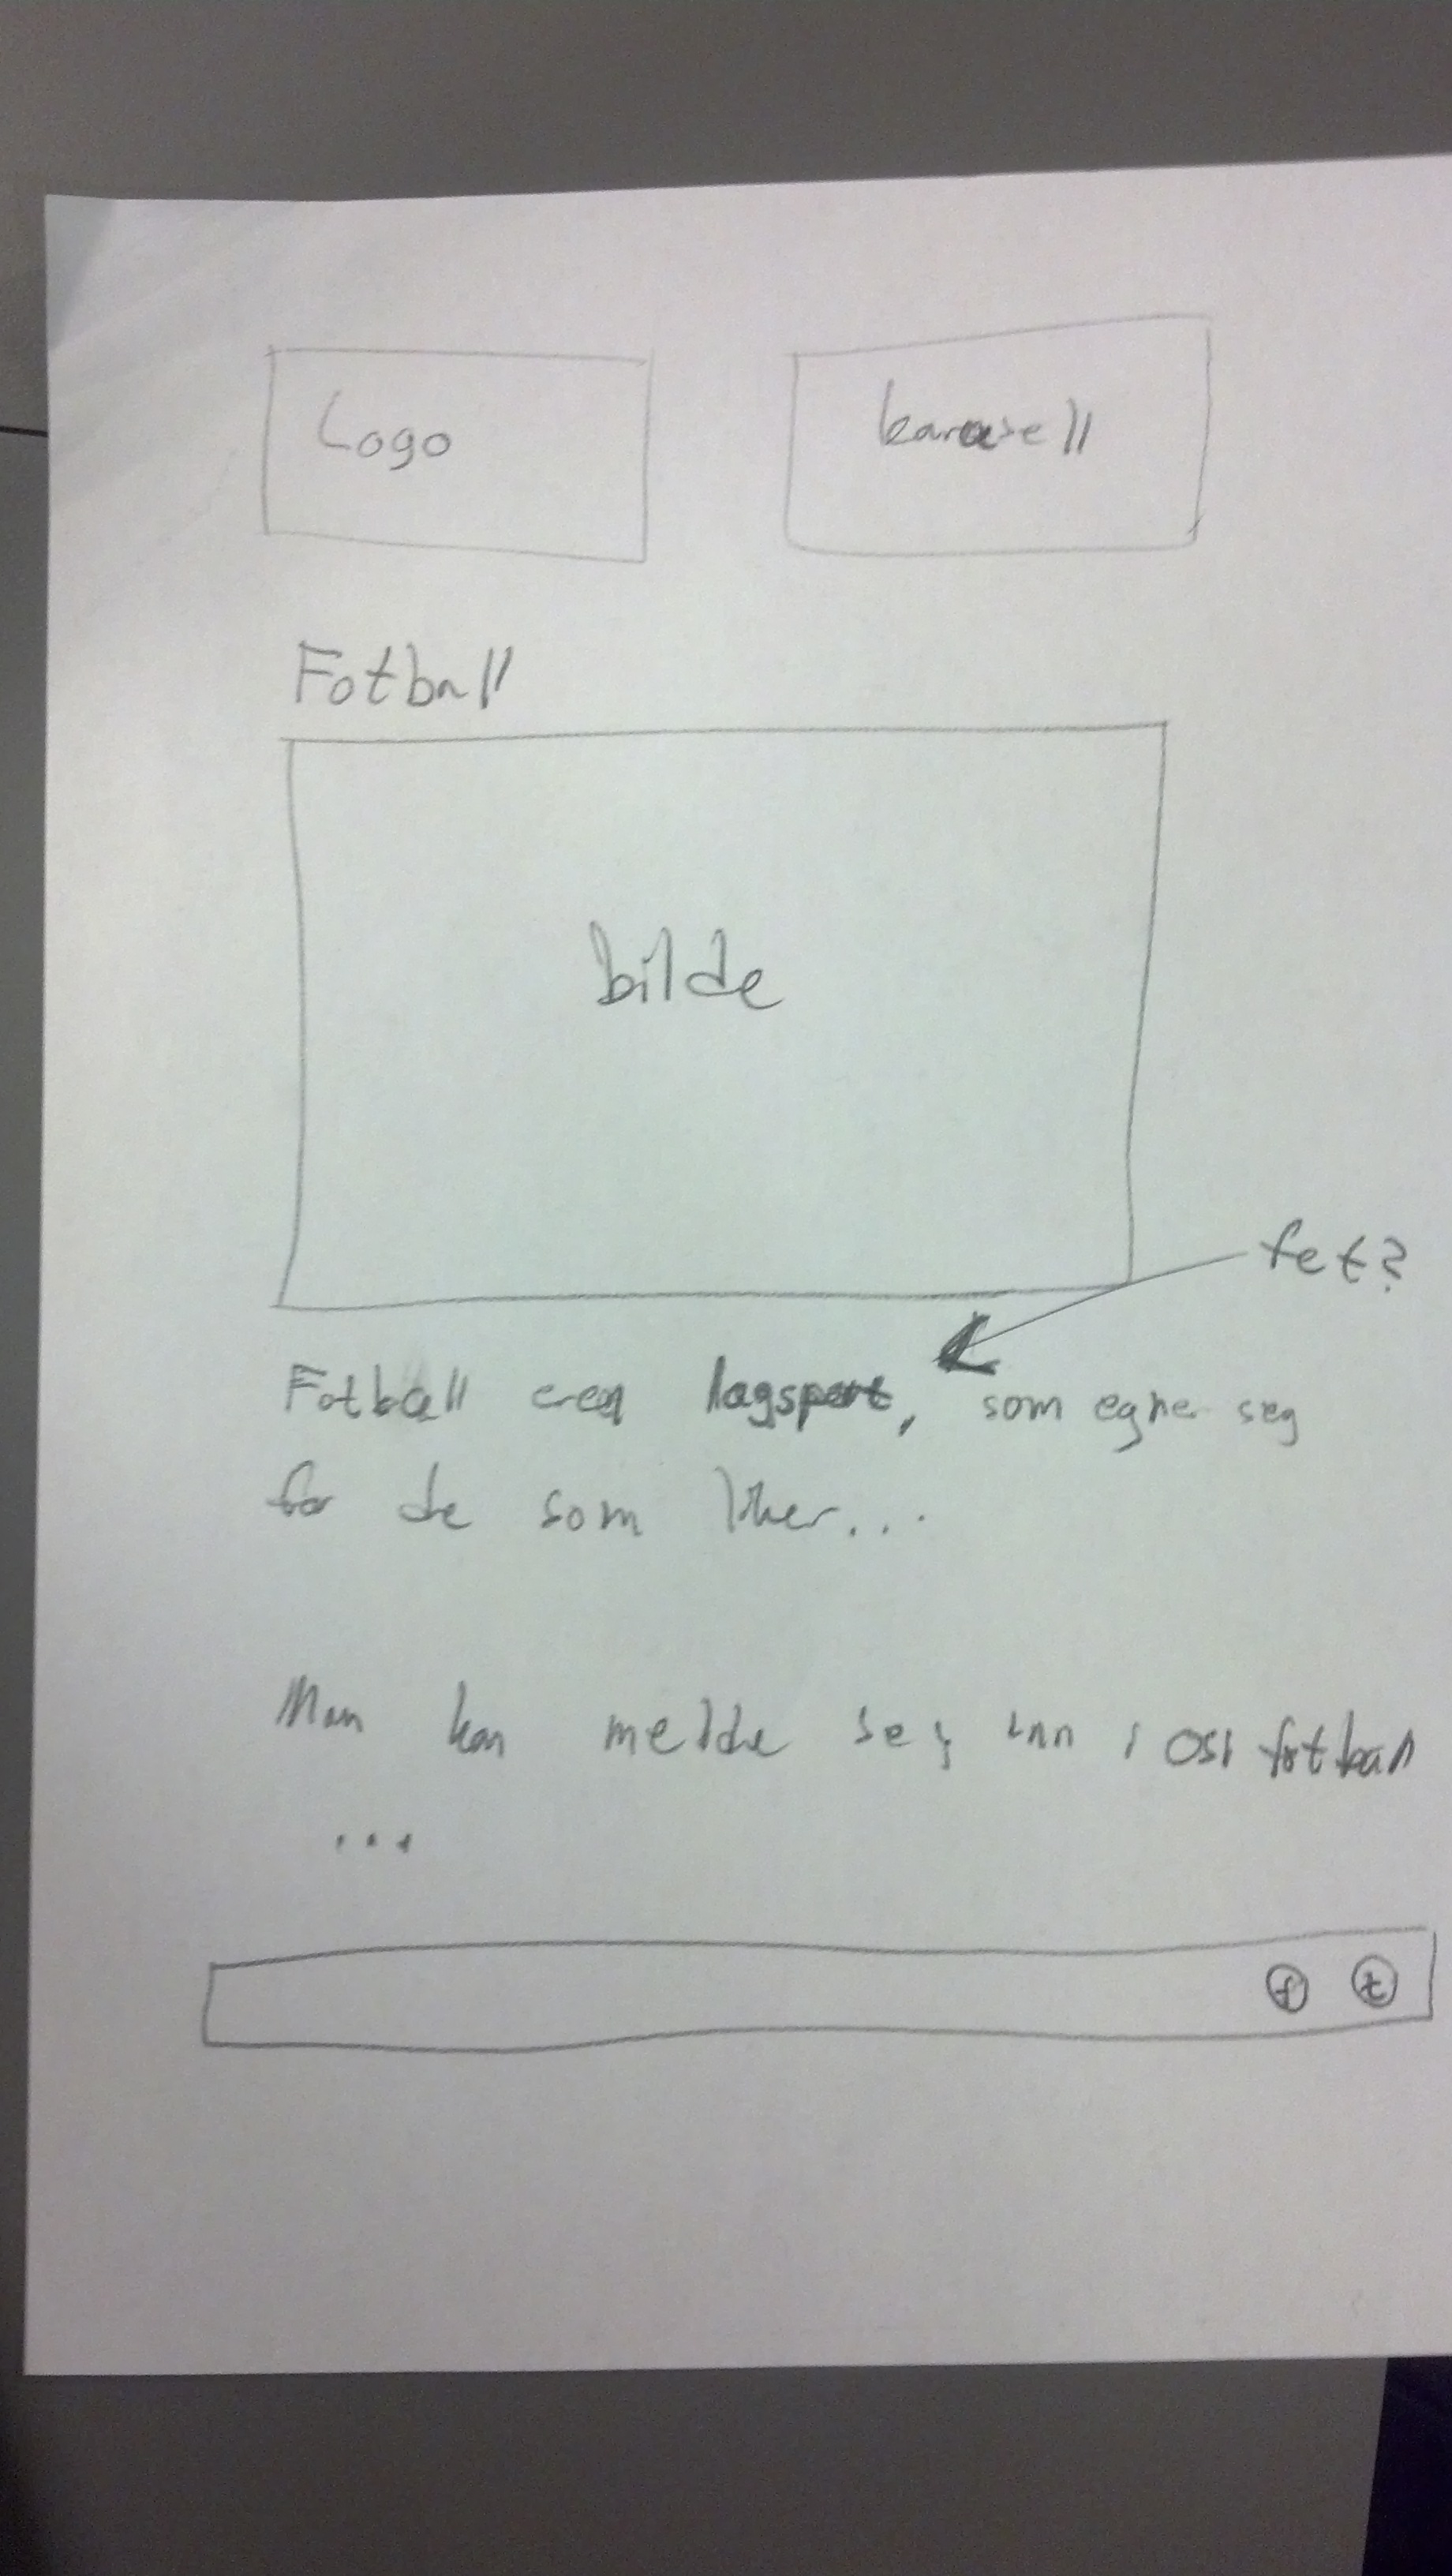 Logo
karusell
Fotball
bilde
fet?
Fotball er en lagsport, som egner seg
for de som liker...
Man kan melde seg inn i OSI fotball
...
f t